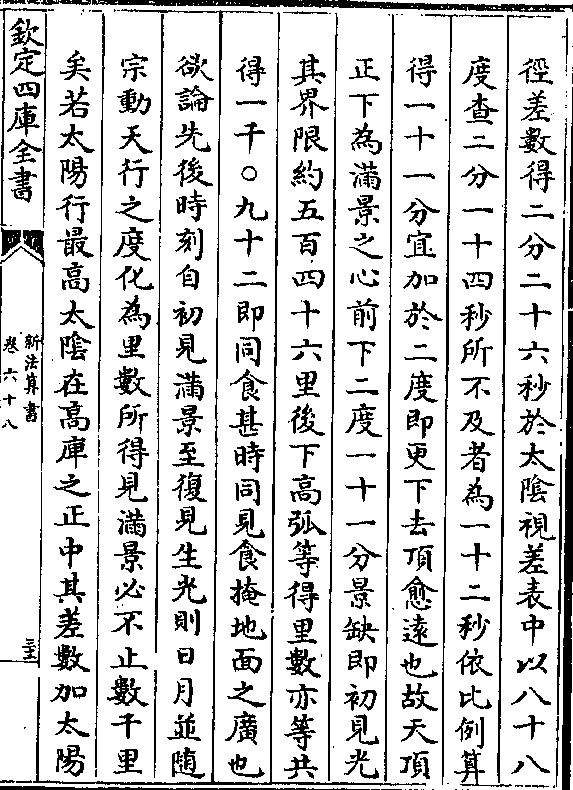 徑差數得二分二十六秒於太陰視差表中以八十八
度查二分一十四秒所不及者為一十二秒依比例算
得一十一分宜加於二度即更下去頂愈遠也故天頂
正下為滿景之心前下二度一十一分景缺即初見光
其界限約五百四十六里後下高弧等得里數亦等共
得一千〇九十二即同食甚時同見食掩地面之廣也
欲論先後時刻自初見滿景至復見生光則日月並隨
宗動天行之度化為里數所得見滿景必不止數千里
矣若太陽行最高太陰在高庫之正中其差數加太陽
欽定四庫全書
新法算書
卷六十八